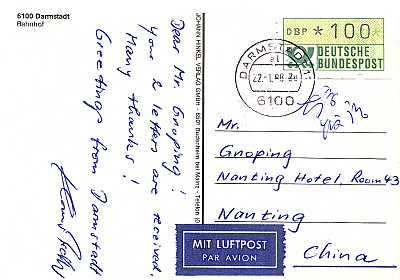 6100 Darmstadt
Bahnhof
Dear Mr. Gnoping!
your 2 letters are received.
Many thanks!
Greetings from Darmstadt
JOHANN HINKEL VERLAG GMBH · 6501 Budenheim bei Mainz · Telefon (0
DARMSTADT 11
al
22.-1.88.-
6100
DBP * 100 *
DEUTSCHE
BUNDESPOST
Mr.
Gnoping
Nanting Hotel, Room 43
Nanting
China
MIT LUFTPOST
PAR AVION